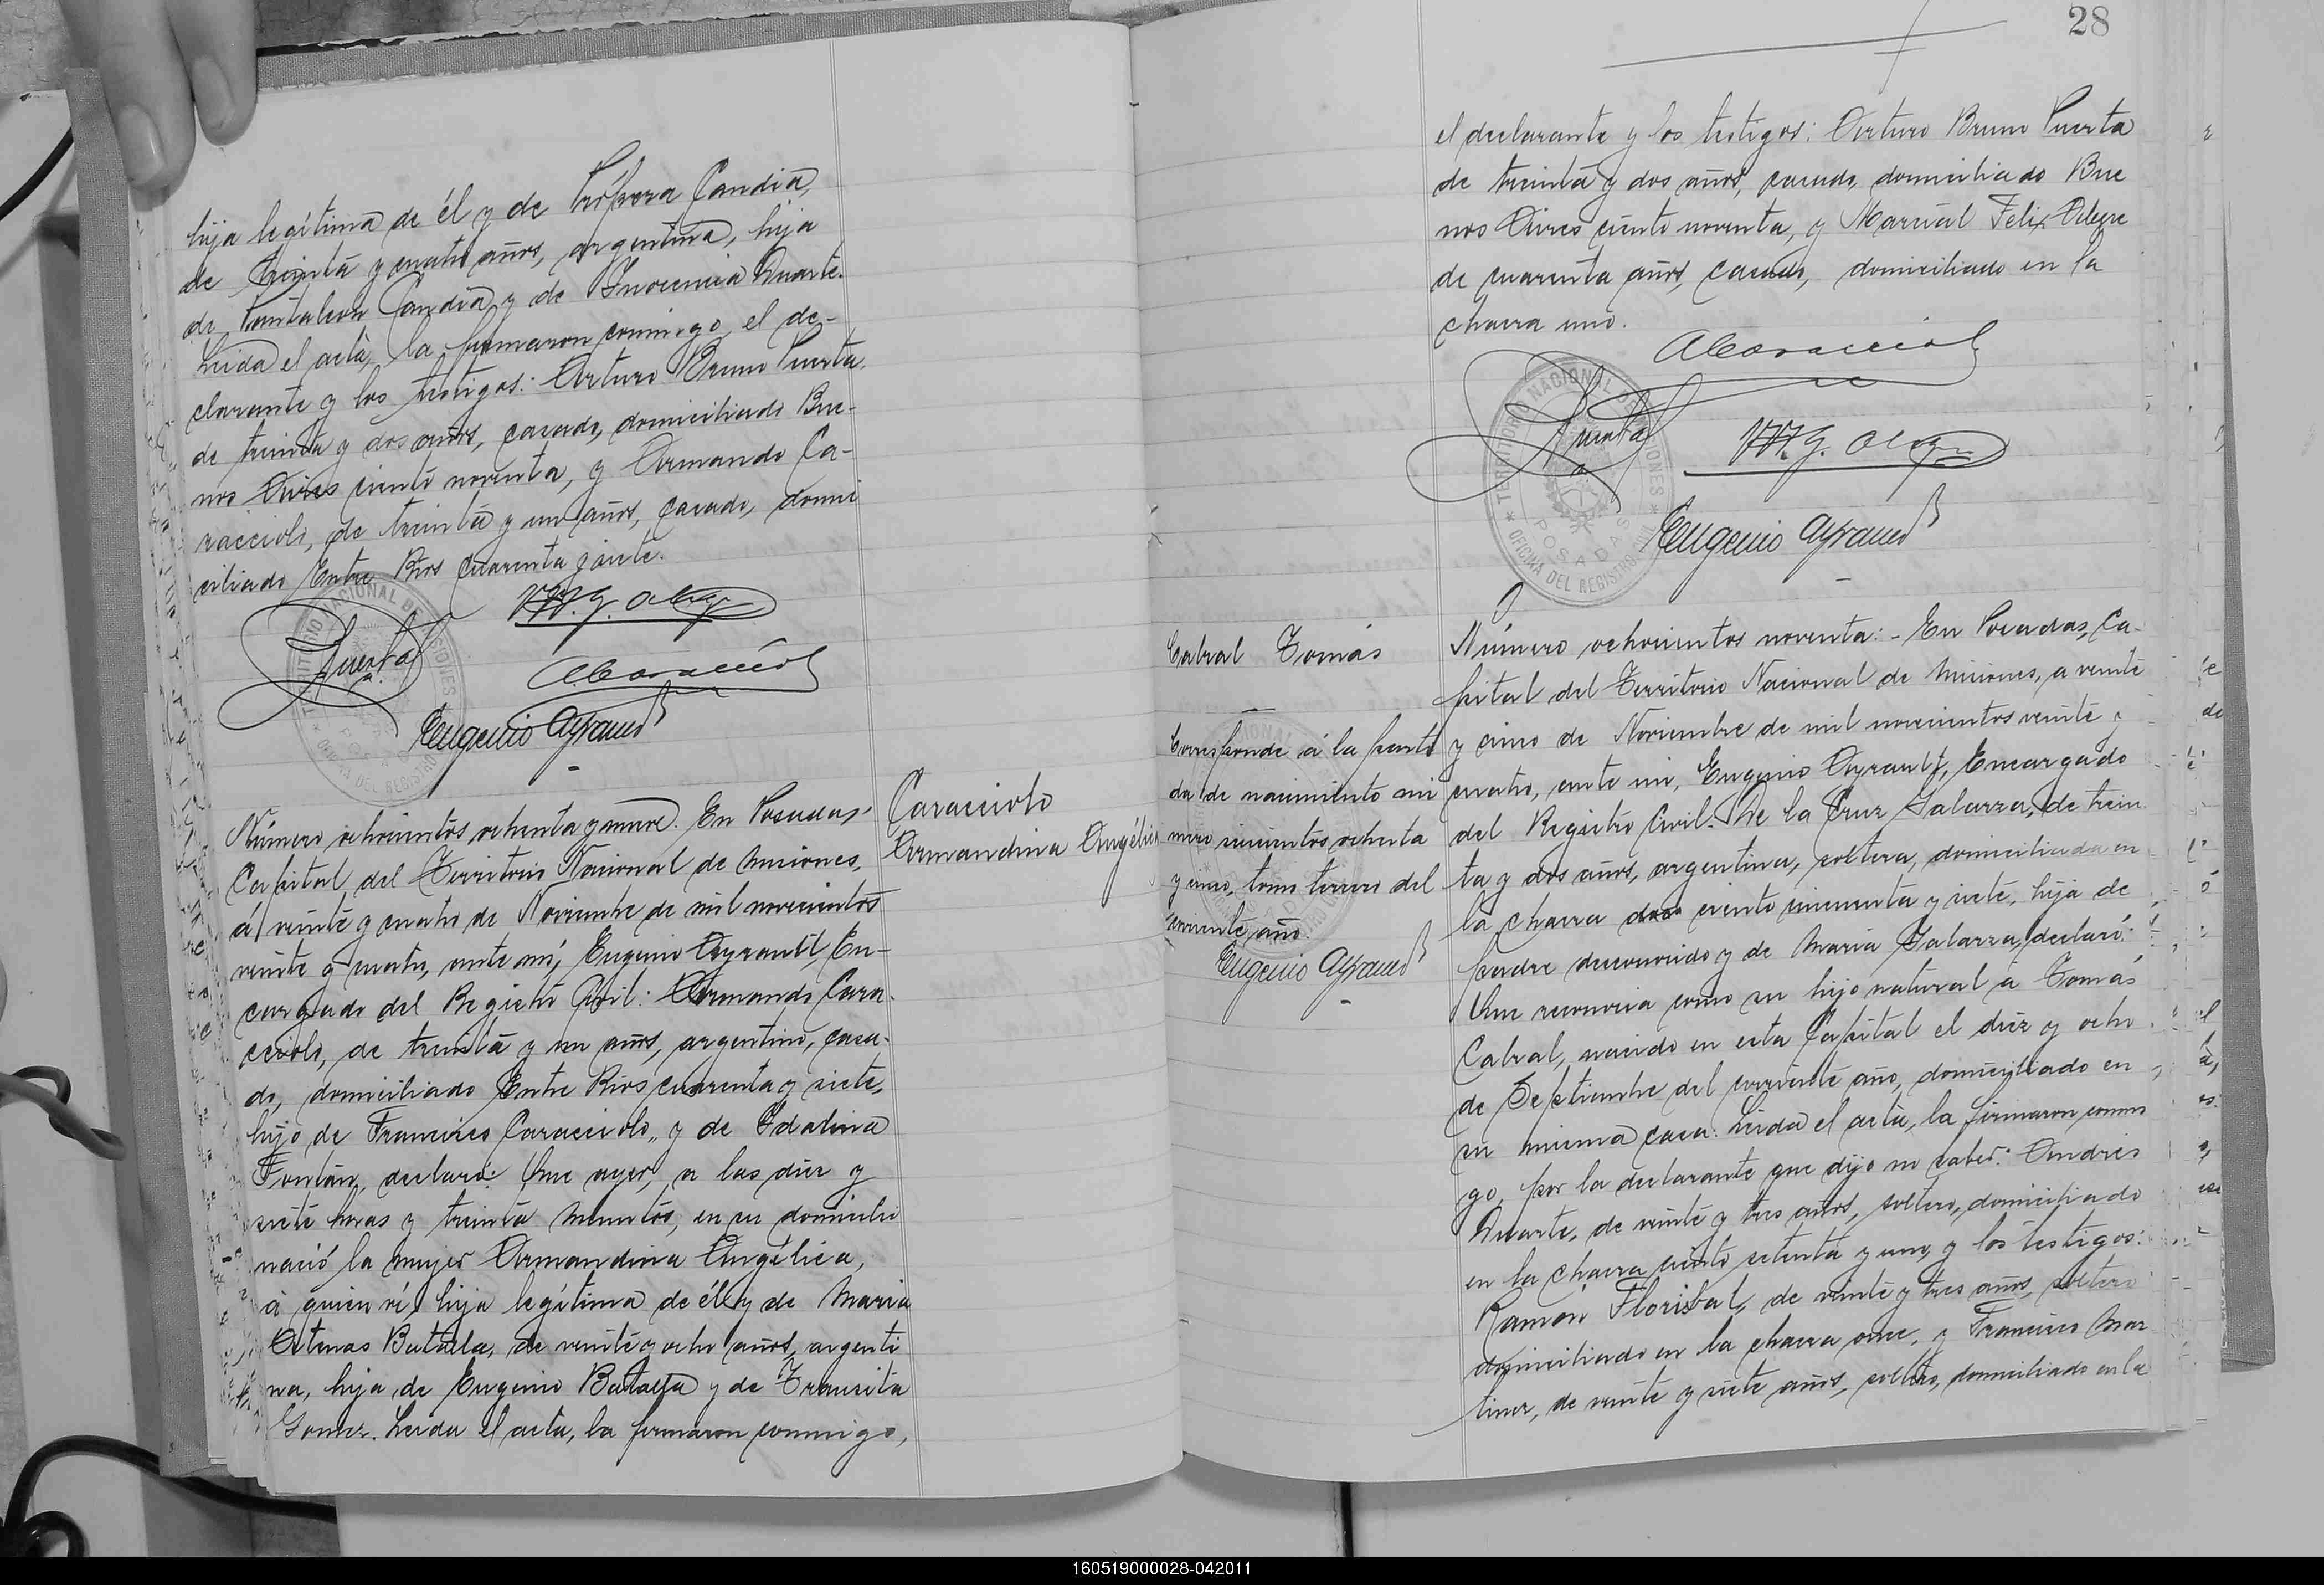 hija legítima de él y de Próspera Candia,
de treinta y cuatro años, argentina, hija
de Pantaleon Candia y de Inocencia Duarte.
Leida el acta, la firmaron conmigo, el de-
clarante y los testigos: Arturo Bruno Puerta,
de treinta y dos años, casado, domiciliado Bue-
nos Aires ciento noventa, y Armando Ca-
racciolo, de treinta y un años, casado, domi
ciliado Entre Rios cuarenta y siete.
Puerta
ACaracciol
Eugenio Ayrault
Número ochocientos ochenta y nueve. En Posadas,
Capital del Territorio Nacional de Misiones,
á veinte y cuatro de Noviembre de mil novecientos
veinte y cuatro, ante mí, Eugenio Ayrault, En-
cargado del Registro Civil: Armando Cara-
cciolo, de treinta y un años, argentino, casa-
do, domiciliado Entre Rios cuarenta y siete,
hijo de Francisco Caracciolo, y de Idalina
Fontán, declaró: Que ayer, a las diez y
siete horas y treinta minutos, en su domicilio
nació la mujer Armandina Angélica,
á quien ví, hija legítima de él y de Maria
Atenas Batalla, de veinte y ocho años, argenti
na, hija de Eugenio Batalla y de Transita
Gomez. Leida el acta, la firmaron conmigo,
Caracciolo
Armandina Angélica
28
el declarante y los testigos: Arturo Bruno Puerta
de treinta y dos años, casado, domiciliado Bue
nos Aires ciento noventa, y Marcial Felix Alegre
de cuarenta años, casado, domiciliado en la
chacra uno.
ACaracciol
TERRITORIO NACIONAL DE MISIONES
Puerta
POSADAS
OFICINA DEL REGISTRO CIVIL
Eugenio Ayrault
Cabral Tomás
Corresponde á la parti
da de nacimiento nú
mero seiscientos ochenta
y cinco, tomo tercero del
corriente año.
Eugenio Ayrault
Número ochocientos noventa: - En Posadas, Ca-
pital del Territorio Nacional de Misiones, a veinte
y cinco de Noviembre de mil novecientos veinte y
cuatro, ante mi, Eugenio Ayrault, Encargado
del Registro Civil: De la Cruz Galarza, de trein
ta y dos años, argentina, soltera, domiciliada en
la chacra ciento cincuenta y siete, hija de
padre desconocido y de Maria Galarza, declaró:
Que reconocia como su hijo natural a Tomás
Cabral, nacido en esta Capital el diez y ocho
de Septiembre del corriente año, domiciliado en
su misma casa. Leida el acta, la firmaron conmi
go, por la declarante que dijo no saber: Andres
Duarte, de veinte y tres años, soltero, domiciliado
en la chacra ciento setenta y uno, y los testigos:
Ramón Florisbal, de veinte y tres años, soltero
domiciliado en la chacra once, y Francisco Mar
tinez, de veinte y siete años, soltero, domiciliado en la
160519000028-042011